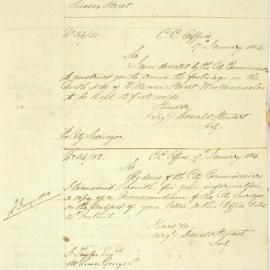 Sussex Street
No 54/51
C.C. Office
9th January 1854
Sir
I am directed by the City Commissioners
to instruct you to cause the footways on the
North side of William Street Woolloomooloo
to be kept 12 feet
I have &c
(Sigd) Donald Stewart
Secy
The City Surveyor
No 54/52
C.C. Office 9th January 1854
Sir
By desire of the City Commissioners
I transmit herewith for your information
a copy of a Memorandum of the City Surveyor
on the subject of your letter to this Office dated
I have &c
(Sigd) Donald Stewart
Secy
J. Taylor Esqr
George St